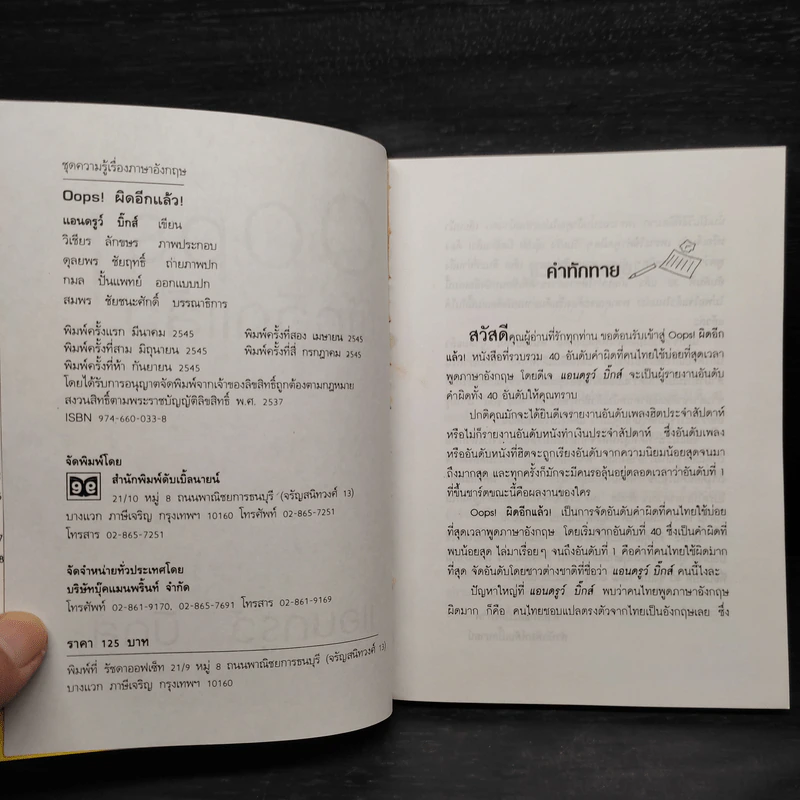 ชุดความรู้เรื่องภาษาอังกฤษ
Oops! ผิดอีกแล้ว!
แอนดรูว์ บิ๊กส์ เขียน
วิเชียร ลักขษร ภาพประกอบ
ดุลยพร ชัยฤทธิ์ ถ่ายภาพปก
กมล ปั้นแพทย์ ออกแบบปก
สมพร ชัยชนะศักดิ์ บรรณาธิการ
พิมพ์ครั้งแรก มีนาคม 2545 พิมพ์ครั้งที่สอง เมษายน 2545
พิมพ์ครั้งที่สาม มิถุนายน 2545 พิมพ์ครั้งที่สี่ กรกฎาคม 2545
พิมพ์ครั้งที่ห้า กันยายน 2545
โดยได้รับการอนุญาตจัดพิมพ์จากเจ้าของลิขสิทธิ์ถูกต้องตามกฎหมาย
สงวนสิทธิ์ตามพระราชบัญญัติลิขสิทธิ์ พ.ศ. 2537
ISBN 974-660-033-8
จัดพิมพ์โดย
สำนักพิมพ์ดับเบิ้ลนายน์
21/10 หมู่ 8 ถนนพาณิชยการธนบุรี (จรัญสนิทวงศ์ 13)
บางแวก ภาษีเจริญ กรุงเทพฯ 10160 โทรศัพท์ 02-865-7251
โทรสาร 02-865-7251
จัดจำหน่ายทั่วประเทศโดย
บริษัทบุ๊คแมนพริ้นท์ จำกัด
โทรศัพท์ 02-861-9170, 02-865-7691 โทรสาร 02-861-9169
ราคา 125 บาท
พิมพ์ที่ รัชดาออฟเซ็ท 21/9 หมู่ 8 ถนนพาณิชยการธนบุรี (จรัญสนิทวงศ์ 13)
บางแวก ภาษีเจริญ กรุงเทพฯ 10160
คำทักทาย
สวัสดีคุณผู้อ่านที่รักทุกท่าน ขอต้อนรับเข้าสู่ Oops! ผิดอีก
แล้ว! หนังสือที่รวบรวม 40 อันดับคำผิดที่คนไทยใช้บ่อยที่สุดเวลา
พูดภาษาอังกฤษ โดยดีเจ แอนดรูว์ บิ๊กส์ จะเป็นผู้รายงานอันดับ
คำผิดทั้ง 40 อันดับให้คุณทราบ
ปกติคุณมักจะได้ยินดีเจรายงานอันดับเพลงฮิตประจำสัปดาห์
หรือไม่ก็รายงานอันดับหนังทำเงินประจำสัปดาห์ ซึ่งอันดับเพลง
หรืออันดับหนังที่ฮิตจะถูกเรียงอันดับจากความนิยมน้อยสุดจนมา
ถึงมากสุด และทุกครั้งก็มักจะมีคนรอลุ้นอยู่ตลอดเวลาว่าอันดับที่ 1
ที่ขึ้นชาร์ตขณะนี้คือผลงานของใคร
Oops! ผิดอีกแล้ว! เป็นการจัดอันดับคำผิดที่คนไทยใช้บ่อย
ที่สุดเวลาพูดภาษาอังกฤษ โดยเริ่มจากอันดับที่ 40 ซึ่งเป็นคำผิดที่
พบน้อยสุด ไล่มาเรื่อยๆ จนถึงอันดับที่ 1 คือคำที่คนไทยใช้ผิดมาก
ที่สุด จัดอันดับโดยชาวต่างชาติที่ชื่อว่า แอนดรูว์ บิ๊กส์ คนนี้ไงละ
ปัญหาใหญ่ที่ แอนดรูว์ บิ๊กส์ พบว่าคนไทยพูดภาษาอังกฤษ
ผิดมาก ก็คือ คนไทยชอบแปลตรงตัวจากไทยเป็นอังกฤษเลย ซึ่ง